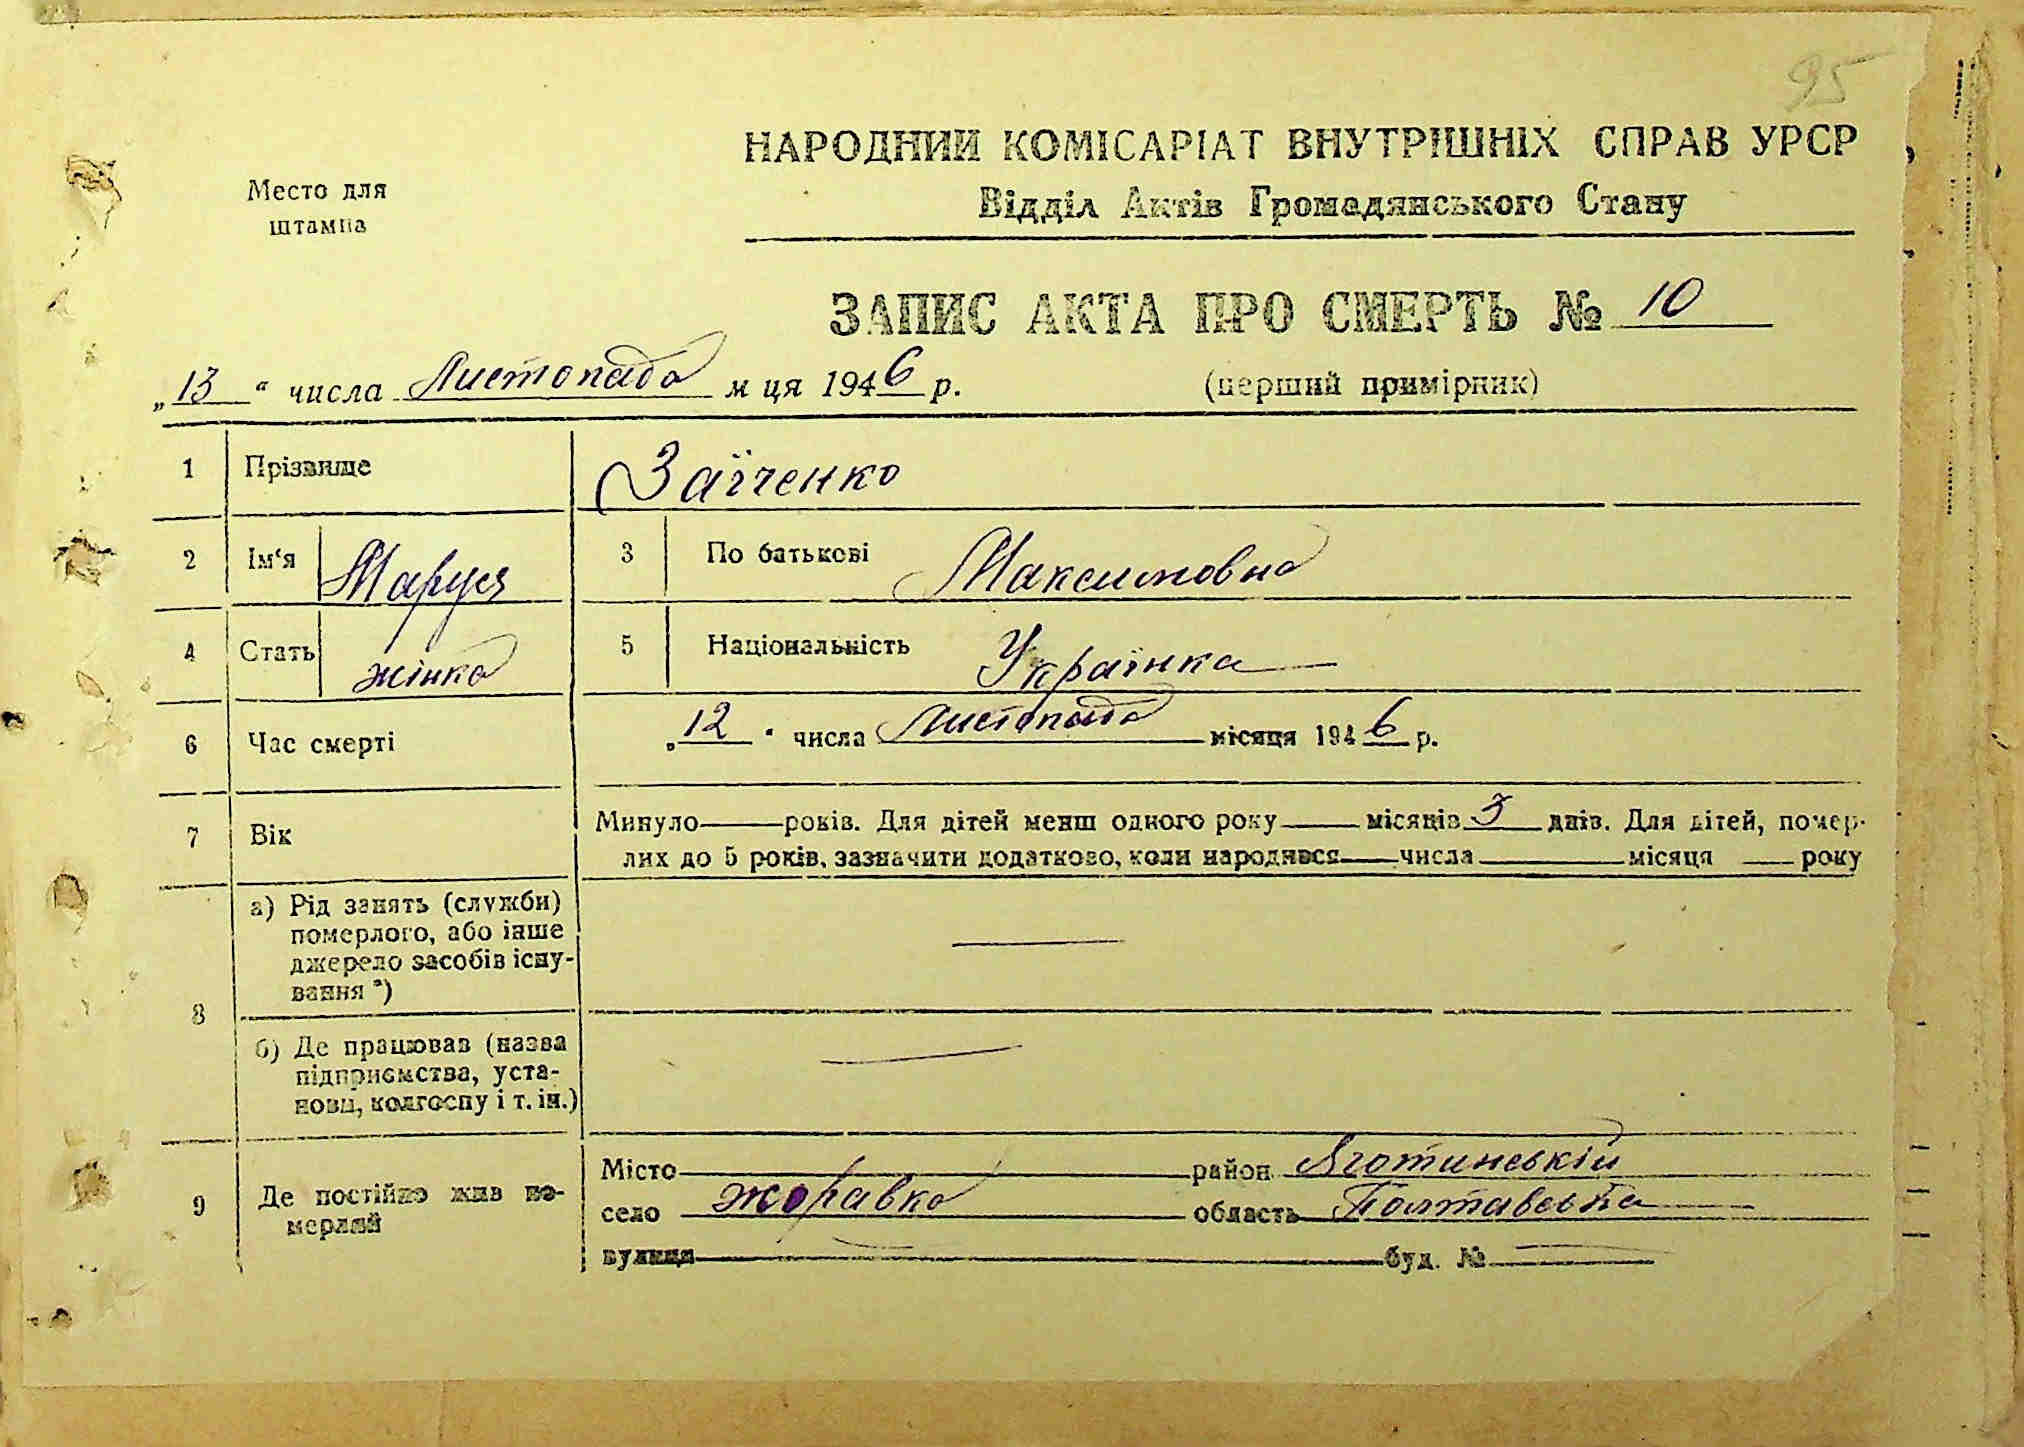 95
НАРОДНИЙ КОМІСАРІАТ ВНУТРІШНІХ СПРАВ УРСР
Место для
штампа
Відділ Актів Громадянського Стану
ЗАПИС АКТА ПРО СМЕРТЬ № 10
„13“ числа Листопада м ця 1946 р. (перший примірник)
1 Прізвище Заїченко
2 Ім'я Маруся 3 По батькові Максимовна
4 Стать жінка 5 Національність Українка
6 Час смерті „12“ числа листопада місяця 1946 р.
7 Вік Минуло — років. Для дітей менш одного року — місяців 3 днів. Для дітей, помер-
лих до 5 років, зазначити додатково, коли народився — числа — місяця — року
8 а) Рід занять (служби)
померлого, або інше
джерело засобів існу-
вання *) —
б) Де працював (назва
підприємства, уста-
нови, колгоспу і т. ін.) —
9 Де постійно жив по-
мерлий
Місто — район Яготинській
село Жоравка область Полтавська
вулиця — буд. № —